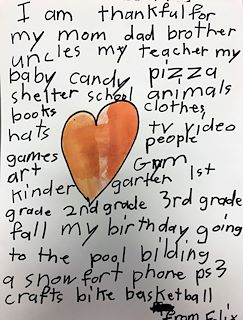 I am thankful for
my mom dad brother
uncles my teacher my
baby candy pizza
shelter school animals
books clothes
hats tv video
people
games Gym
art
kinder garten 1st
grade 2nd grade 3rd grade
fall my birthday going
to the pool bilding
a snow fort phone ps3
crafts bike basketball
From Elix